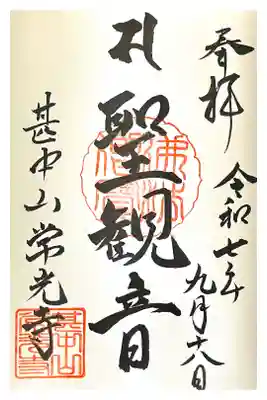 奉拝
令和七年
九月十八日
聖観音
中山常光寺